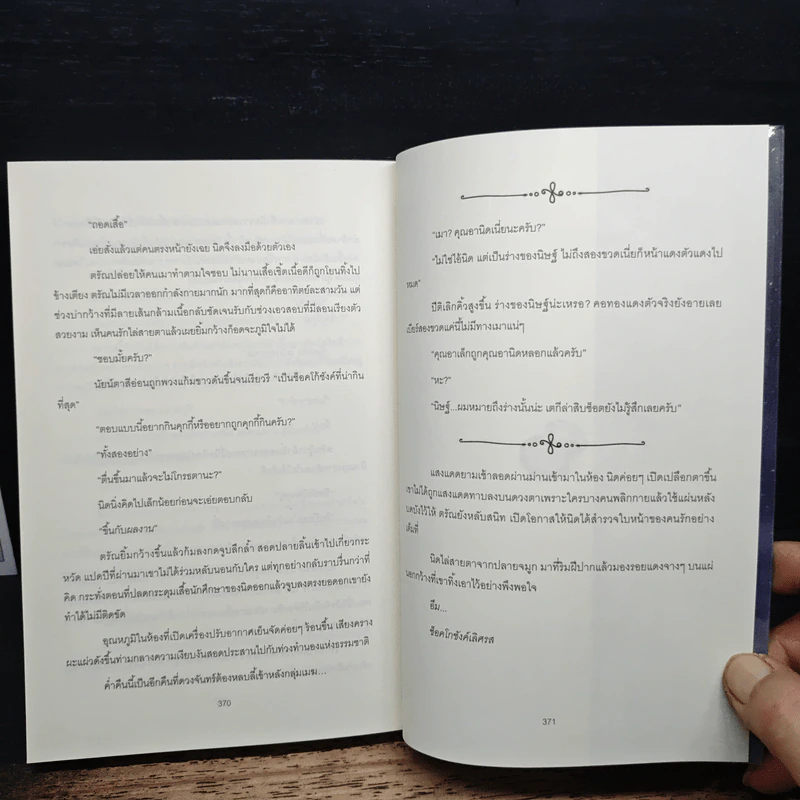 "ถอดเสื้อ"
เอ่ยสั่งแล้วแต่คนตรงหน้ายังเฉย นิดจึงลงมือด้วยตัวเอง
ตรัณปล่อยให้คนเมาทำตามใจชอบ ไม่นานเสื้อเชิ้ตเนื้อดีก็ถูกโยนทิ้งไป
ข้างเตียง ตรัณไม่มีเวลาออกกำลังกายมากนัก มากที่สุดก็คืออาทิตย์ละสามวัน แต่
ช่วงบ่ากว้างที่มีลายเส้นกล้ามเนื้อกลับชัดเจนรับกับช่วงเอวสอบที่มีลอนเรียงตัว
สวยงาม เห็นคนรักไล่สายตาแล้วเผยยิ้มกว้างก็อดจะภูมิใจไม่ได้
"ชอบมั้ยครับ?"
นัยน์ตาสีอ่อนถูกพวงแก้มขาวดันขึ้นจนเรียวรี "เป็นช็อคโก้ชังค์ที่น่ากิน
ที่สุด"
"ตอบแบบนี้อยากกินคุกกี้หรืออยากถูกคุกกี้กินครับ?"
"ทั้งสองอย่าง"
"ตื่นขึ้นมาแล้วจะไม่โกรธตานะ?"
นิดนิ่งคิดไปเล็กน้อยก่อนจะเอ่ยตอบกลับ
"ขึ้นกับผลงาน"
ตรัณยิ้มกว้างขึ้นแล้วก้มลงกดจูบลึกล้ำ สอดปลายลิ้นเข้าไปเกี่ยวกระ
หวัด แปดปีที่ผ่านมาเขาไม่ได้ร่วมหลับนอนกับใคร แต่ทุกอย่างกลับราบรื่นกว่าที่
คิด กระทั่งตอนที่ปลดกระดุมเสื้อนักศึกษาของนิดออกแล้วจูบลงตรงยอดอกเขายัง
ทำได้ไม่มีติดขัด
อุณหภูมิในห้องที่เปิดเครื่องปรับอากาศเย็นจัดค่อยๆ ร้อนขึ้น เสียงคราง
ผะแผ่วดังขึ้นท่ามกลางความเงียบงันสอดประสานไปกับท่วงทำนองแห่งธรรมชาติ
ค่ำคืนนี้เป็นอีกคืนที่ดวงจันทร์ต้องหลบลี้เข้าหลังกลุ่มเมฆ...
370
"เมา? คุณอานิดเนี่ยนะครับ?"
"ไม่ใช่ไอ้นิด แต่เป็นร่างของนิษฐ์ ไม่ถึงสองขวดเนี่ยก็หน้าแดงตัวแดงไป
หมด"
ปีติเลิกคิ้วสูงขึ้น ร่างของนิษฐ์น่ะเหรอ? คอทองแดงตัวจริงยังอายเลย
เบียร์สองขวดแค่นี้ไม่มีทางเมาแน่ๆ
"คุณอาเล็กถูกคุณอานิดหลอกแล้วครับ"
"หะ?"
"นิษฐ์...ผมหมายถึงร่างนั้นน่ะ เตกีล่าสิบช็อตยังไม่รู้สึกเลยครับ"
แสงแดดยามเช้าลอดผ่านม่านเข้ามาในห้อง นิดค่อยๆ เปิดเปลือกตาขึ้น
เขาไม่ได้ถูกแสงแดดทาบลงบนดวงตาเพราะใครบางคนพลิกกายแล้วใช้แผ่นหลัง
บดบังไว้ให้ ตรัณยังหลับสนิท เปิดโอกาสให้นิดได้สำรวจใบหน้าของคนรักอย่าง
เต็มที่
นิดไล่สายตาจากปลายจมูก มาที่ริมฝีปากแล้วมองรอยแดงจางๆ บนแผ่
นอกกว้างที่เขาทิ้งเอาไว้อย่างพึงพอใจ
อืม...
ช็อคโกชังค์เลิศรส
371